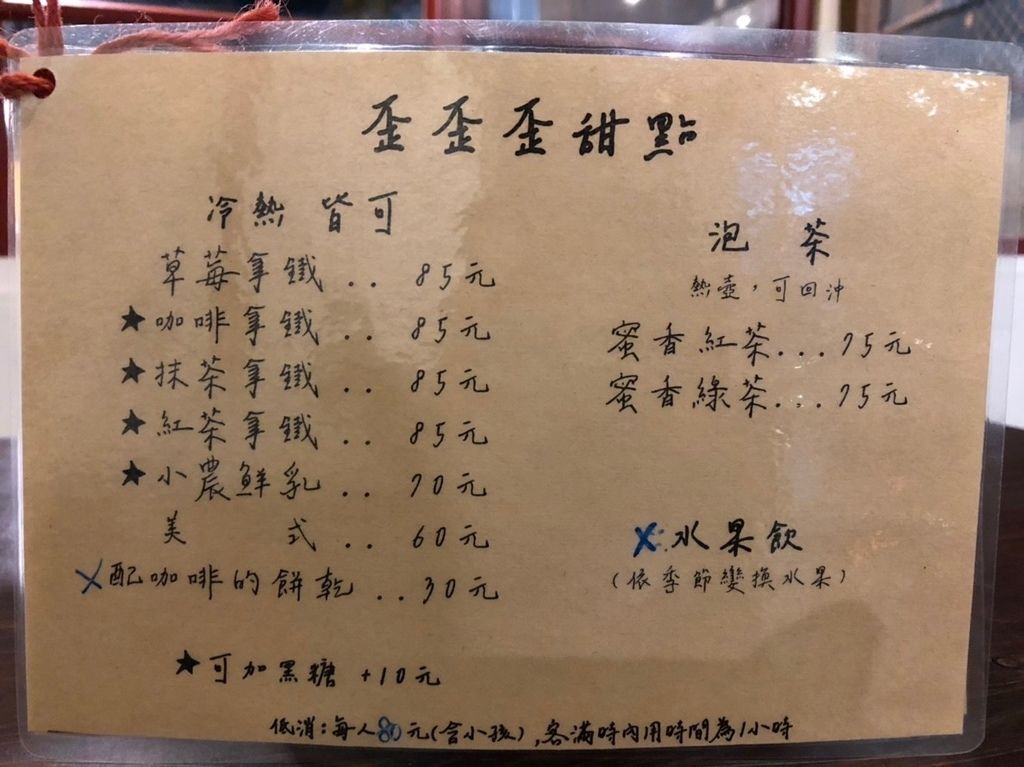 歪歪歪甜點
冷熱 皆可
草莓拿鐵 .. 85元
★咖啡拿鐵 .. 85元
★抹茶拿鐵 .. 85元
★紅茶拿鐵 .. 85元
★小農鮮乳 .. 70元
美 式 .. 60元
X配咖啡的餅乾 .. 30元
★可加黑糖 +10元
泡 茶
熱壺，可回沖
蜜香紅茶...75元
蜜香綠茶...75元
X水果飲
(依季節變換水果)
低消:每人80元(含小孩),客滿時內用時間為1小時